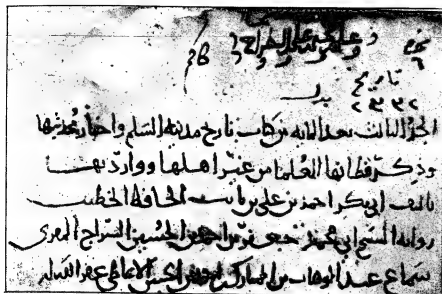 تاريخ
٢٣٣٢
الجزء الثالث بعد المائه من كتاب تاريخ مدينه السلم واخبار محدثيها
وذكر قطانها العلما من غير اهلها ووارديها
تاليف ابي بكر احمد بن علي بن ثابت الحافظ الخطيب
روايه الشيخ ابي محمد جعفر بن احمد بن الحسين السراج المقرى
سماع عبد الوهاب بن المبارك بن احمد بن الحسن الانماطي غفر الله له